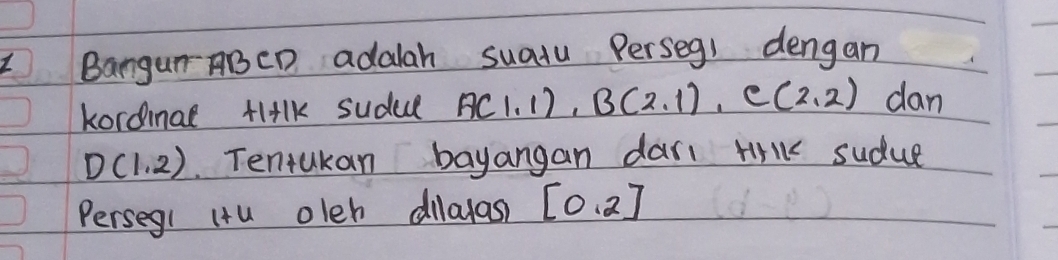 1 Bangun ABCD adalah suatu Persegi dengan
kordinat titik sudut A(1.1), B(2.1), C(2.2) dan
D(1.2). Tentukan bayangan dari titik sudut
Persegi itu oleh dilatasi [0.2]